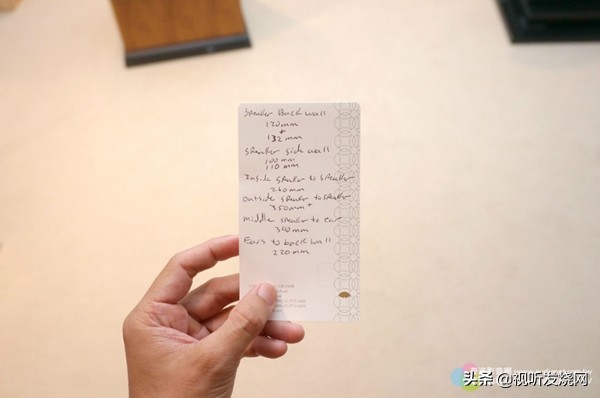 Speaker Back wall
120mm
+
132mm
Speaker side wall
100mm
110mm
Inside speaker to speaker
260mm
outside speaker to speaker
350mm+
middle speaker to ear
340mm
Ears to back wall
220mm
头条 @视听发烧网